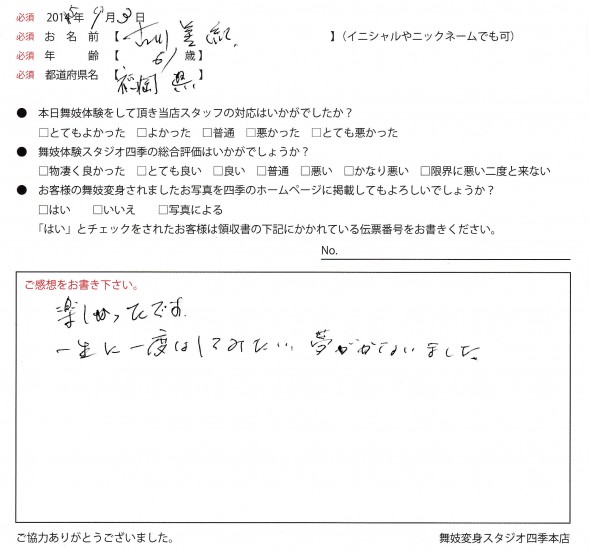 必須 2015年 9月3日
必須 お名前【吉川 美紀】（イニシャルやニックネームでも可）
必須 年齢【61歳】
必須 都道府県名【福岡県】
● 本日舞妓体験をして頂き当店スタッフの対応はいかがでしたか？
□とてもよかった □よかった □普通 □悪かった □とても悪かった
● 舞妓体験スタジオ四季の総合評価はいかがでしょうか？
□物凄く良かった □とても良い □良い □普通 □悪い □かなり悪い □限界に悪い二度と来ない
● お客様の舞妓変身されましたお写真を四季のホームページに掲載してもよろしいでしょうか？
□はい □いいえ □写真による
「はい」とチェックをされたお客様は領収書の下記にかかれている伝票番号をお書きください。
No.
ご感想をお書き下さい。
楽しかったです。
一生に一度はしてみたい、夢がかないました。
ご協力ありがとうございました。 舞妓変身スタジオ四季本店